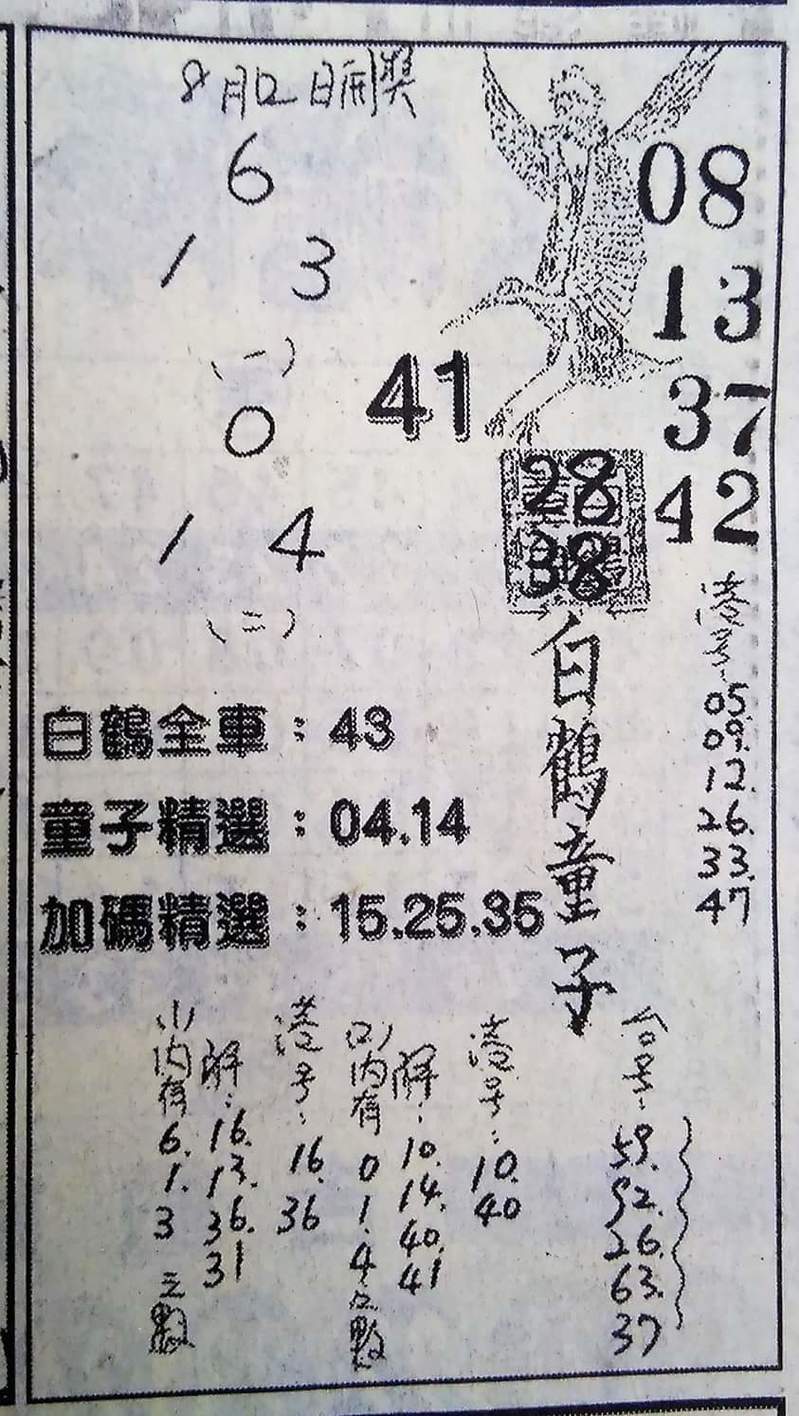 8月12日開獎
6
1 3
(一)
0
1 4
(二)
41
08
13
37
42
28
38
白鶴童子
港号:
05.
09.
12.
26.
33.
47
白鶴全車：43
童子精選：04.14
加碼精選：15.25.35
(1)內有6.1.3之數
解:16.13.36.31
港号:16.36
(2)內有0.1.4之數
解:10.14.40.41
港号:10.40
台号:59.92.26.63.37